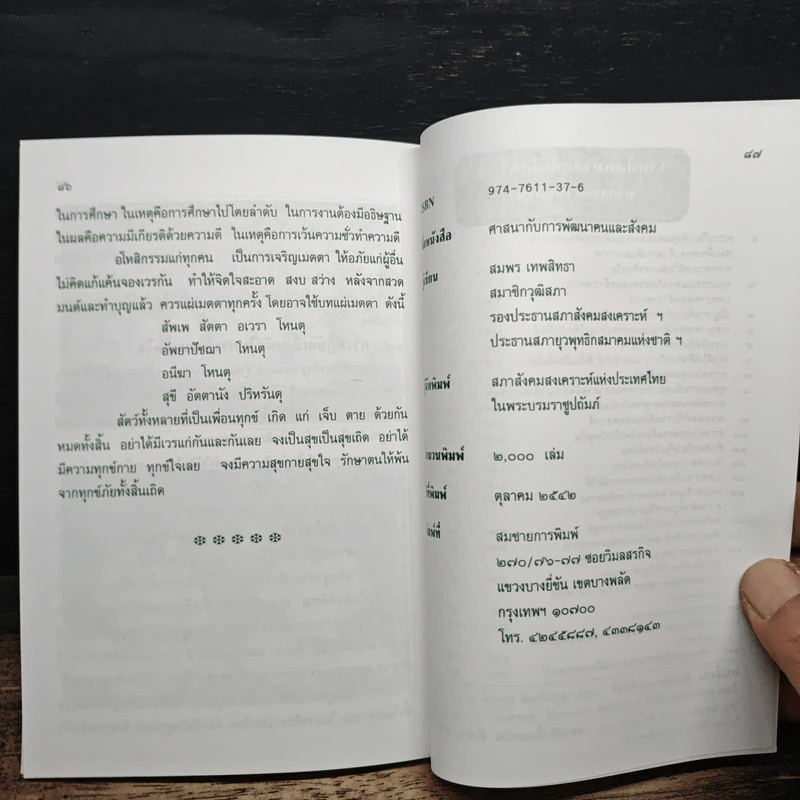 ๘๖
ในการศึกษา ในเหตุคือการศึกษาไปโดยลำดับ ในการงานต้องมีอธิษฐาน
ในผลคือความมีเกียรติด้วยความดี ในเหตุคือการเว้นความชั่วทำความดี
อโหสิกรรมแก่ทุกคน เป็นการเจริญเมตตา ให้อภัยแก่ผู้อื่น
ไม่คิดแก้แค้นจองเวรกัน ทำให้จิตใจสะอาด สงบ สว่าง หลังจากสวด
มนต์และทำบุญแล้ว ควรแผ่เมตตาทุกครั้ง โดยอาจใช้บทแผ่เมตตา ดังนี้
สัพเพ สัตตา อเวรา โหนตุ
อัพยาปัชฌา โหนตุ
อนีฆา โหนตุ
สุขี อัตตานัง ปริหรันตุ
สัตว์ทั้งหลายที่เป็นเพื่อนทุกข์ เกิด แก่ เจ็บ ตาย ด้วยกัน
หมดทั้งสิ้น อย่าได้มีเวรแก่กันและกันเลย จงเป็นสุขเป็นสุขเถิด อย่าได้
มีความทุกข์กาย ทุกข์ใจเลย จงมีความสุขกายสุขใจ รักษาตนให้พ้น
จากทุกข์ภัยทั้งสิ้นเถิด
๘๗
SBN 974-7611-37-6
อหนังสือ ศาสนากับการพัฒนาคนและสังคม
ผู้เขียน สมพร เทพสิทธา
สมาชิกวุฒิสภา
รองประธานสภาสังคมสงเคราะห์ ฯ
ประธานสภายุวพุทธิกสมาคมแห่งชาติ ฯ
ผู้จัดพิมพ์ สภาสังคมสงเคราะห์แห่งประเทศไทย
ในพระบรมราชูปถัมภ์
จำนวนพิมพ์ ๒,๐๐๐ เล่ม
ที่พิมพ์ ตุลาคม ๒๕๔๒
พิมพ์ที่ สมชายการพิมพ์
๒๗๐/๗๖-๗๗ ซอยวิมลสรกิจ
แขวงบางยี่ขัน เขตบางพลัด
กรุงเทพฯ ๑๐๗๐๐
โทร. ๔๒๔๕๘๘๗, ๔๓๓๘๑๔๓